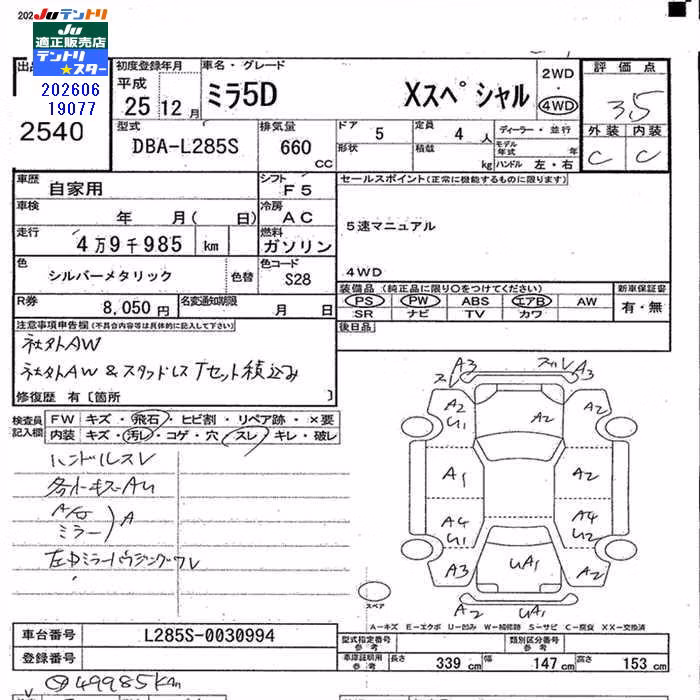 202 JUテントリ
JU
適正販売店
テントリ
★スター
202606
19077
2540
初度登録年月
平成
25 12月
車名・グレード
ミラ5D Xスペシャル
2WD
4WD
評価点
3.5
外装 内装
C C
型式
DBA-L285S
排気量
660 CC
ドア 5
形状
定員 4人
積載 kg
ディーラー・並行
モデル年式 年
ハンドル 左・右
車歴
自家用
シフト F5
車検
年 月( 日)
冷房 AC
走行
4万9千985 km
燃料 ガソリン
色
シルバーメタリック
色替
色コード S28
R券 8,050円
名変通知期限 月 日
セールスポイント(正常に機能するものに限ります)
5速マニュアル
4WD
装備品(純正品に限り○をつけてください)
PS PW ABS エアB AW
SR ナビ TV カワ
新車保証書
有・無
後日品
注意事項申告欄(不具合内容等は具体的に記入して下さい)
社外AW
社外AW & スタッドレス Tセット積込み
修復歴 有〔箇所 〕
検査員記入欄
FW キズ・飛石・ヒビ割・リペア跡・×要
内装 キズ・汚レ・コゲ・穴・スレ・キレ・破レ
ハンドルスレ
ミラー
A
A3 スレ
スレ A3
A2 U1
A2
A2
A1
A2
A4 U1
A4 U2
A3
UA1
A2
A2 UA1
スペア
A-キズ E-エクボ U-凹み W-補修跡 S-サビ C-腐食 XX-交換済
車台番号 L285S-0030994
登録番号
型式指定番号 参考
類別区分番号 参考
車庫証明用 参考 長さ 339 cm 幅 147 cm 高さ 153 cm
49985km